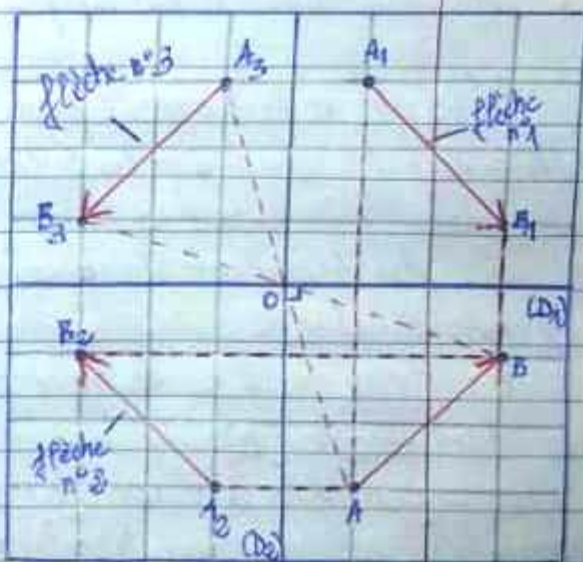 A3
A1
flèche n°3
flèche
n°1
B3
B1
O
(D1)
B2
B
flèche
n°2
A2
A
(D2)